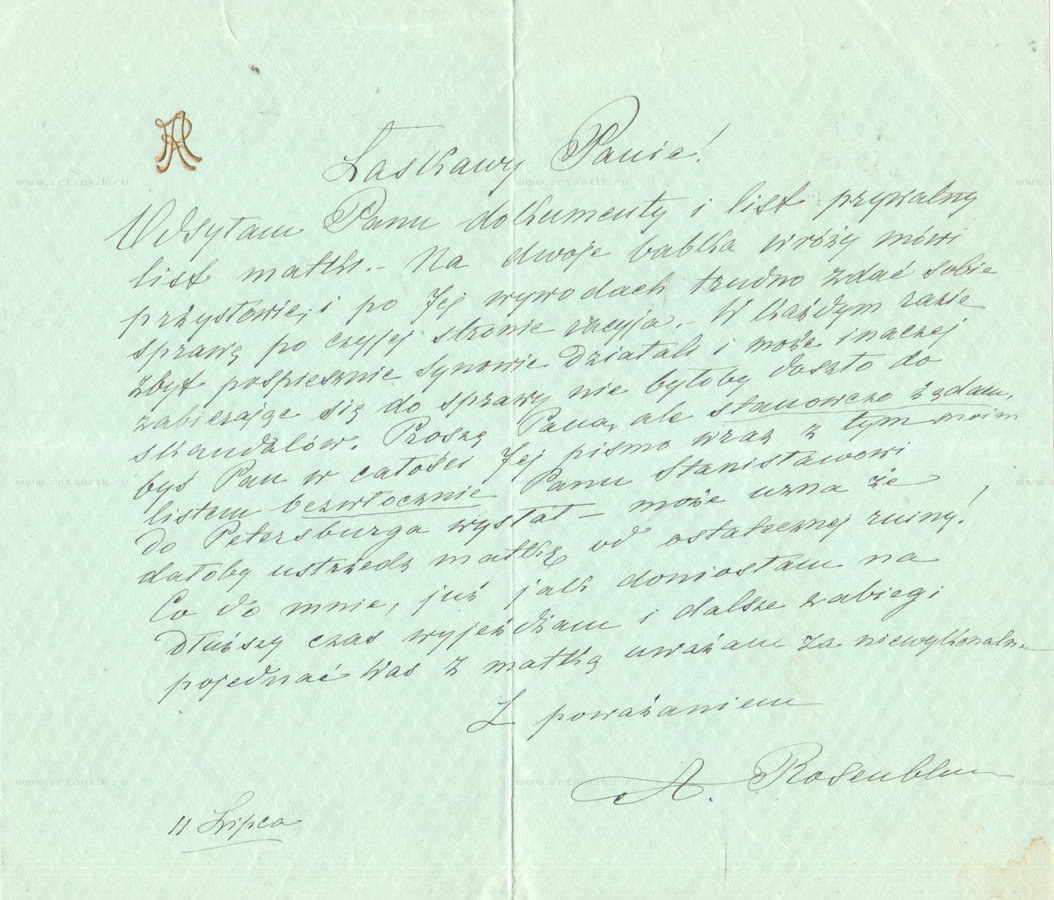 AR
Łaskawy Panie!
Odsyłam Panu dokumenty i list prywatny
list matki. – Na dwoje babka wróży mówi
przysłowie, i po Jej wywodach trudno zdać sobie
sprawę po czyjej stronie racyja. – W każdym razie
zbyt pospiesznie synowie działali i może inaczej
zabierając się do sprawy nie byłoby doszło do
skandalów. Proszę Pana, ale stanowczo żądam,
byś Pan w całości Jej pismo wraz z tym moim
listem bezwłocznie Panu Stanisławowi
do Petersburga wysłał – może uzna że
dałoby ustrzedz matkę od ostatecznej ruiny!
Co do mnie, już jak doniosłam na
dłuższy czas wyjeżdżam i dalsze zabiegi
pojednać Was z matką uważam za niewykonalne
Z poważaniem
A. Rosenblum
11 Lipca
www.artantik.ru